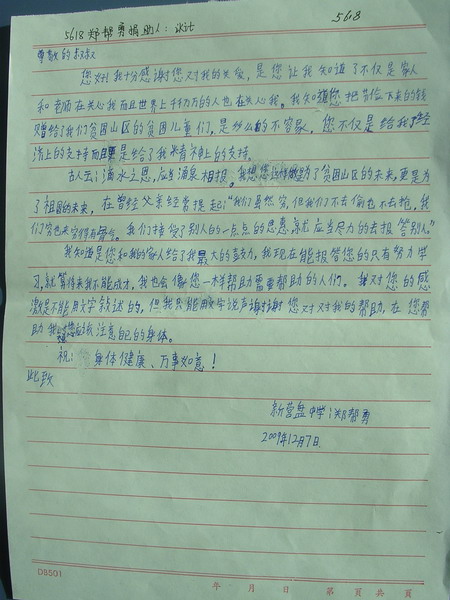 5618
5618郑帮勇捐助人:冰计
尊敬的叔叔
您好!我十分感谢您对我的关爱,是您让我知道了不仅是家人
和老师在关心我而且世界上千千万万的人也在关心我。我知道您把节俭下来的钱
赠给了我们贫困山区的贫困儿童们,是多么的不容易,您不仅是给我了经
济上的支持而且更是给了我精神上的支持。
古人云:滴水之恩,应当涌泉相报。我想您这样做为了贫困山区的未来,更是为
了祖国的未来,在曾经父亲经常提起:“我们虽然穷,但我们不去偷也不去抢,我
们穷也来穷得有骨气。我们接受了别人的一点点的恩惠就应当尽力的去报答别人。”
我知道是您和我的家人给了我最大的鼓力,我现在能报答您的只有努力学
习,就算将来我不能成才,我也会像您一样帮助需要帮助的人们。我对您的感
激是不能用文字叙述的,但我只能用学说声谢谢您对对我的帮助,在您帮
助我时您应该注意自己的身体。
祝:身体健康、万事如意!
此致
新营盘中学:郑帮勇
2009年12月7日
DS501
年 月 日 第 頁共 頁